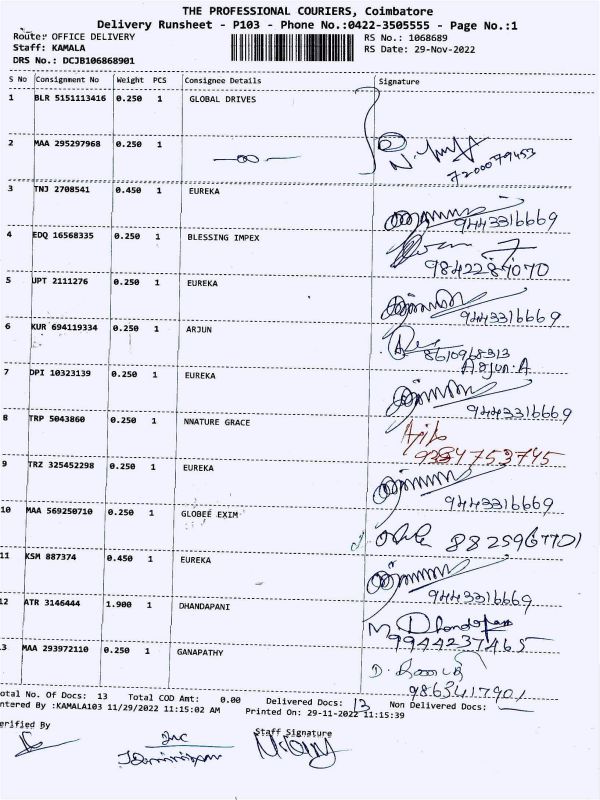 THE PROFESSIONAL COURIERS, Coimbatore
Delivery Runsheet - P103 - Phone No.:0422-3505555 - Page No.:1
Route: OFFICE DELIVERY RS No.: 1068689
Staff: KAMALA RS Date: 29-Nov-2022
DRS No.: DCJB106868901
S No Consignment No Weight PCS Consignee Details Signature
1 BLR 5151113416 0.250 1 GLOBAL DRIVES
2 MAA 295297968 0.250 1
7200079453
3 TNJ 2708541 0.450 1 EUREKA
9443316669
4 EDQ 16568335 0.250 1 BLESSING IMPEX
9842287070
5 UPT 2111276 0.250 1 EUREKA
9443316669
6 KUR 694119334 0.250 1 ARJUN
8610968313
Arjun.A
7 DPI 10323139 0.250 1 EUREKA
9443316669
8 TRP 5043860 0.250 1 NNATURE GRACE
9384753745
9 TRZ 325452298 0.250 1 EUREKA
9443316669
10 MAA 569250710 0.250 1 GLOBEE EXIM
8825967701
11 KSM 887374 0.450 1 EUREKA
9443316669
12 ATR 3146444 1.900 1 DHANDAPANI
M. Dhandapani
9944237465
3 MAA 293972110 0.250 1 GANAPATHY
9863417901
otal No. Of Docs: 13 Total COD Amt: 0.00 Delivered Docs: 13 Non Delivered Docs:
ntered By :KAMALA103 11/29/2022 11:15:02 AM Printed On: 29-11-2022 11:15:39
erified By Staff Signature